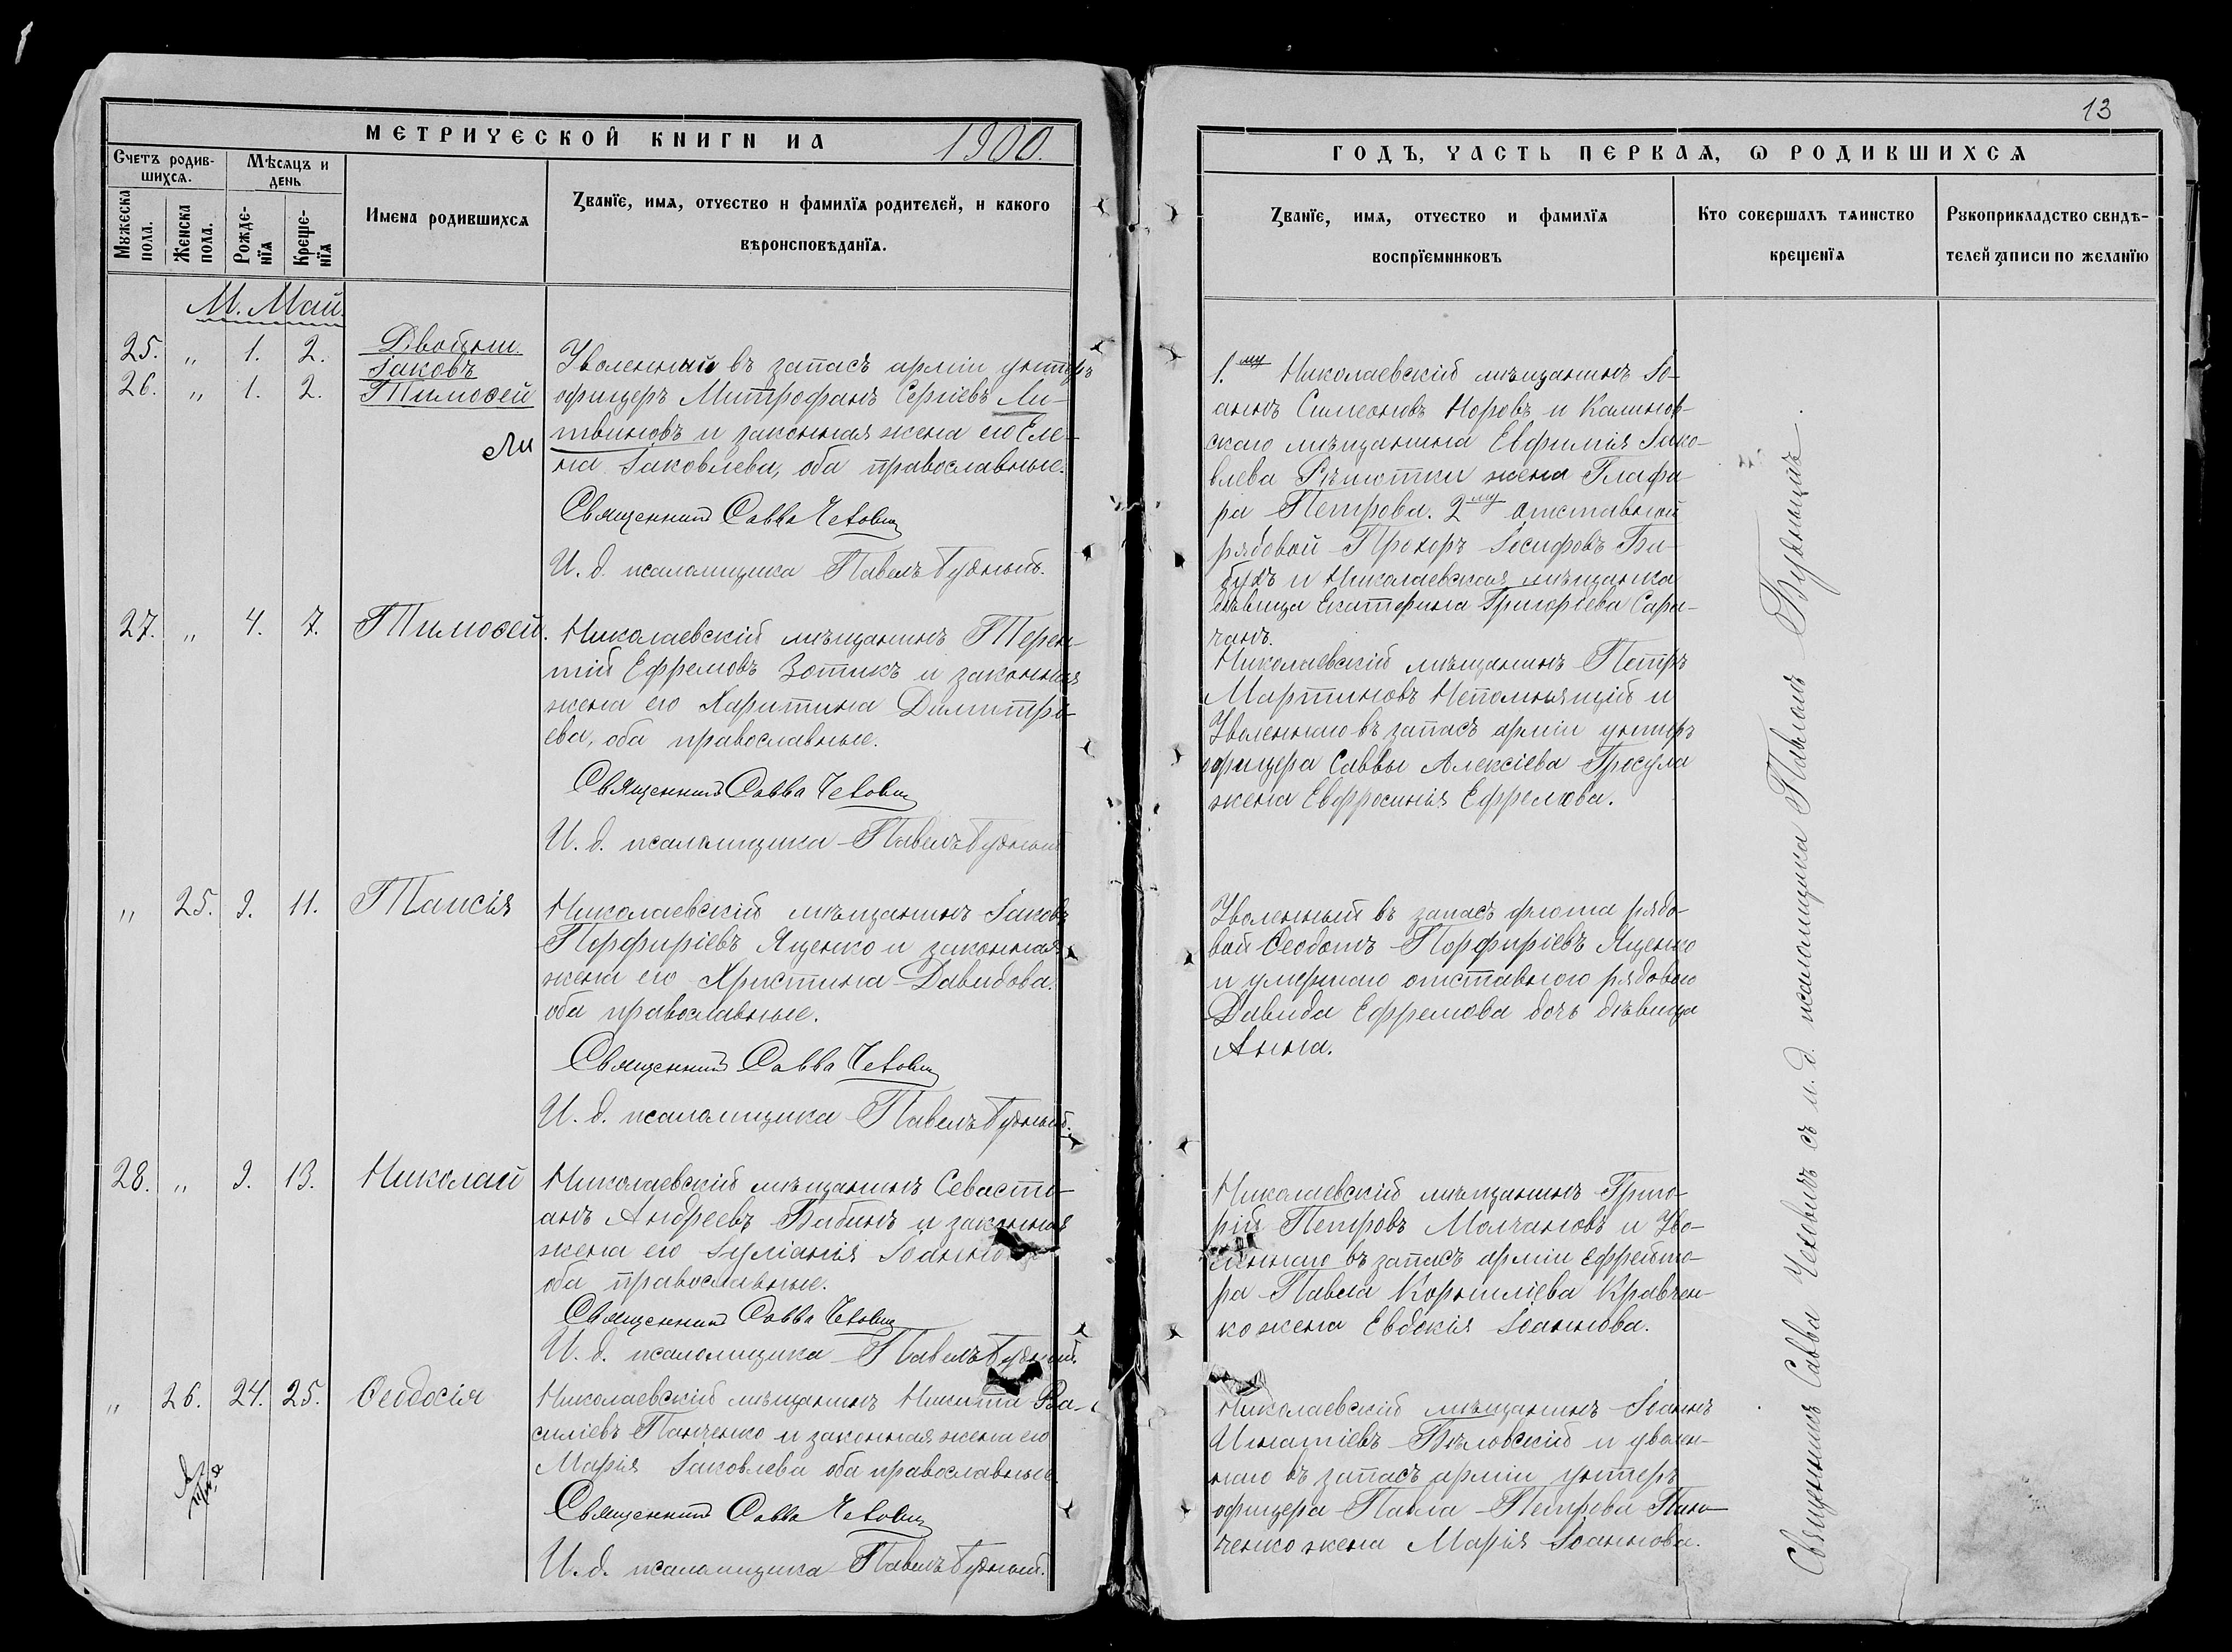 13
МЕТРИЧЕСКОЙ КНИГИ НА 1900.
Счетъ родив-
шихся.
Мѣсяцъ и
день
Мужеска
пола.
Женска
пола.
Рожде-
нія
Креще-
нія
Имена родившихся
Званіе, имя, отчество и фамилія родителей, и какого
вѣроисповѣданія.
М. Май.
25. „ 1. 2. Двойни
Іаковъ
26. „ 1. 2. Тимоѳей
Уволенный въ запасъ арміи унтеръ
офицеръ Митрофанъ Сергіевъ Ли-
твиновъ и законная жена его Еле-
на Іаковлева, оба православные.
Священникъ Савва Чехович
И. д. псаломщика Павелъ Будный.
27. „ 4. 7. Тимоѳей.
Николаевскій мѣщанинъ Терен-
тій Ефремовъ Зотикъ и законная
жена его Харитина Димитрі-
ева, оба православные.
Священникъ Савва Чехович
И. д. псаломщика Павелъ Будный
„ 25. 9. 11. Таисія
Николаевскій мѣщанинъ Іаковъ
Порфиріевъ Яценко и законная
жена его Христина Давидова.
оба православные.
Священникъ Савва Чехович
И. д. псаломщика Павелъ Будный.
28. „ 9. 13. Николай
Николаевскій мѣщанинъ Севасті-
анъ Андреевъ Бабинъ и законная
жена его Іуліанія
оба православные.
Священникъ Савва Чехович
И. д. псаломщика Павелъ Будный.
„ 26. 24. 25. Ѳеодосія
Николаевскій мѣщанинъ Никита Ва-
силіевъ Панченко и законная жена его
Марія Іаковлева оба православные.
Священникъ Савва Чехович
И. д. псаломщика Павелъ Будный.
ГОДЪ, ЧАСТЬ ПЕРВАЯ, О РОДИВШИХСЯ
Званіе, имя, отчество и фамилія
воспріемниковъ
Кто совершалъ таинство
крещенія
Рукоприкладство свидѣ-
телей записи по желанію
1.му Николаевскій мѣщанинъ Іо-
аннъ Симеоновъ Норовъ и Калинов-
скаго мѣщанина Евфимія Іако-
влева жена Глафи-
ра Петрова. 2му отставной
рядовой Прохоръ Іосифовъ Ба-
бихъ и Николаевская мѣщанка
дѣвица Екатерина Григоріева Сара-
чанъ.
Николаевскій мѣщанинъ Петръ
Мартиновъ Непомнящій и
Уволеннаго въ запасъ арміи унтеръ
офицера Саввы Алексіева Гросула
жена Евфросинія Ефремова.
Уволенный въ запасъ флота рядо-
вой Ѳеодотъ Порфиріевъ Яценко
и умершаго отставного рядового
Давида Ефремова дочь дѣвица
Анна.
Николаевскій мѣщанинъ Григо-
рій Петровъ Молчановъ и Уво-
леннаго въ запасъ арміи ефрейто-
ра Павла Корниліева Кравчен-
ко жена Евдокія Іоаннова.
Николаевскій мѣщанинъ Іоаннъ
Игнатіевъ Вѣловскій и уволен-
наго въ запасъ арміи унтеръ
офицера Павла Петрова Пан-
ченко жена Марія Іоаннова.
Священникъ Савва Чеховичъ съ и. д. псаломщика Павломъ Буднымъ.